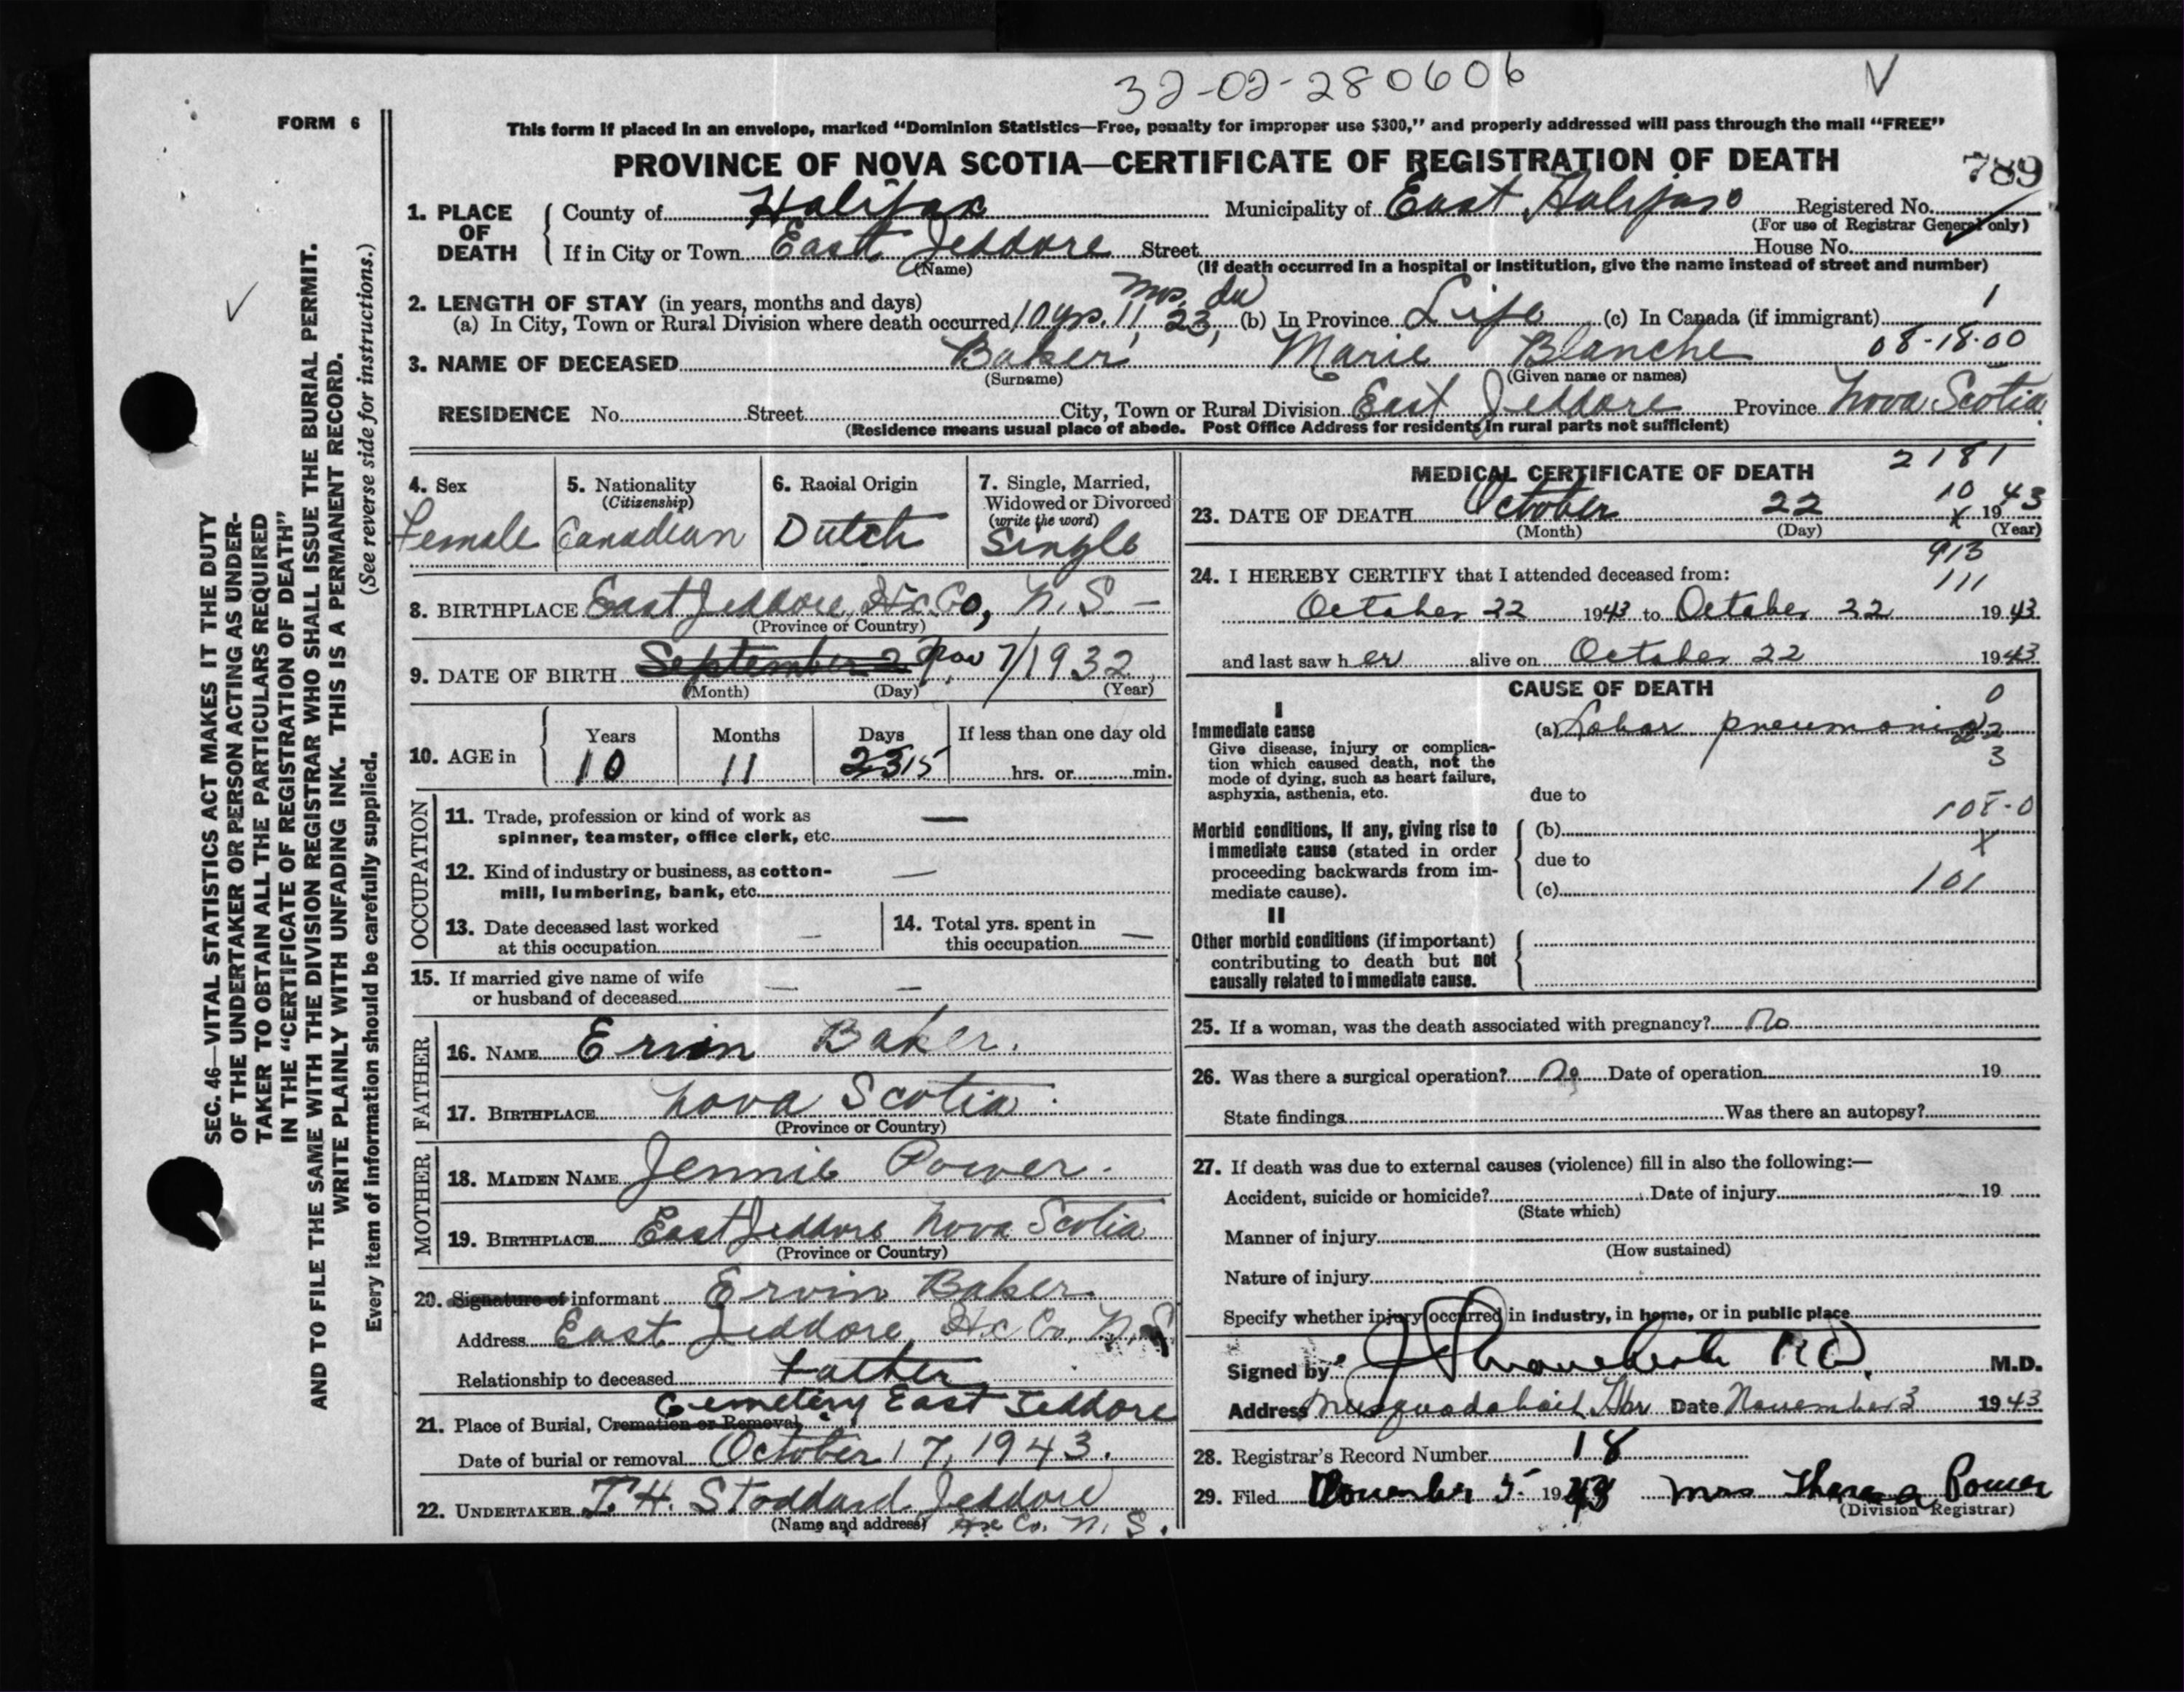 32-02-280606
FORM 6
This form if placed in an envelope, marked "Dominion Statistics—Free, penalty for improper use $300," and properly addressed will pass through the mail "FREE"
PROVINCE OF NOVA SCOTIA—CERTIFICATE OF REGISTRATION OF DEATH
789
1. PLACE OF DEATH
County of Halifax Municipality of East Halifax Registered No.
(For use of Registrar General only)
If in City or Town East Jeddore Street House No.
(Name) (If death occurred in a hospital or institution, give the name instead of street and number)
2. LENGTH OF STAY (in years, months and days)
(a) In City, Town or Rural Division where death occurred 10 yrs. 11 mos, 23, (b) In Province Life (c) In Canada (if immigrant) 1
3. NAME OF DECEASED Baker Marie Blanche 08-18-00
(Surname) (Given name or names)
RESIDENCE No. Street City, Town or Rural Division East Jeddore Province Nova Scotia
(Residence means usual place of abode. Post Office Address for residents in rural parts not sufficient)
4. Sex
Female
5. Nationality
(Citizenship)
Canadian
6. Racial Origin
Dutch
7. Single, Married,
Widowed or Divorced
(write the word)
Single
8. BIRTHPLACE East Jeddore, Hx. Co, N. S -
(Province or Country)
9. DATE OF BIRTH September 2 Nov 7/1932
(Month) (Day) (Year)
10. AGE in
Years Months Days If less than one day old
10 11 23 15 hrs. or min.
OCCUPATION
11. Trade, profession or kind of work as
spinner, teamster, office clerk, etc. —
12. Kind of industry or business, as cotton-
mill, lumbering, bank, etc. —
13. Date deceased last worked
at this occupation —
14. Total yrs. spent in
this occupation —
15. If married give name of wife
or husband of deceased — —
FATHER
16. NAME Ervin Baker.
17. BIRTHPLACE Nova Scotia
(Province or Country)
MOTHER
18. MAIDEN NAME Jennie Power.
19. BIRTHPLACE East Jeddore Nova Scotia
(Province or Country)
20. Signature of informant Ervin Baker.
Address East Jeddore, Hx Co, N.S
Relationship to deceased Father
21. Place of Burial, Cremation or Removal Cemetery East Jeddore
Date of burial or removal October 17, 1943.
22. UNDERTAKER T. H. Stoddard Jeddore
(Name and address) Hx Co. N. S.
MEDICAL CERTIFICATE OF DEATH
2181
10
23. DATE OF DEATH October 22 x 1943
(Month) (Day) (Year)
913
111
24. I HEREBY CERTIFY that I attended deceased from:
October 22 1943 to October 22 1943
and last saw her alive on October 22 1943
CAUSE OF DEATH
0
I
Immediate cause
Give disease, injury or complica-
tion which caused death, not the
mode of dying, such as heart failure,
asphyxia, asthenia, etc.
(a) Lobar pneumonia
3
due to
108-0
Morbid conditions, if any, giving rise to
immediate cause (stated in order
proceeding backwards from im-
mediate cause).
(b)
x
due to
(c) 101
II
Other morbid conditions (if important)
contributing to death but not
causally related to immediate cause.
25. If a woman, was the death associated with pregnancy? No
26. Was there a surgical operation? No Date of operation 19
State findings Was there an autopsy?
27. If death was due to external causes (violence) fill in also the following:—
Accident, suicide or homicide? Date of injury 19
(State which)
Manner of injury
(How sustained)
Nature of injury
Specify whether injury occurred in industry, in home, or in public place
Signed by M.D.
Address Musquodoboit Hbr Date November 3 1943
28. Registrar's Record Number 18
29. Filed November 5- 1943 Mrs Theresa Power
(Division Registrar)
SEC. 46—VITAL STATISTICS ACT MAKES IT THE DUTY
OF THE UNDERTAKER OR PERSON ACTING AS UNDER-
TAKER TO OBTAIN ALL THE PARTICULARS REQUIRED
IN THE "CERTIFICATE OF REGISTRATION OF DEATH"
AND TO FILE THE SAME WITH THE DIVISION REGISTRAR WHO SHALL ISSUE THE BURIAL PERMIT.
WRITE PLAINLY WITH UNFADING INK. THIS IS A PERMANENT RECORD.
Every item of information should be carefully supplied. (See reverse side for instructions.)